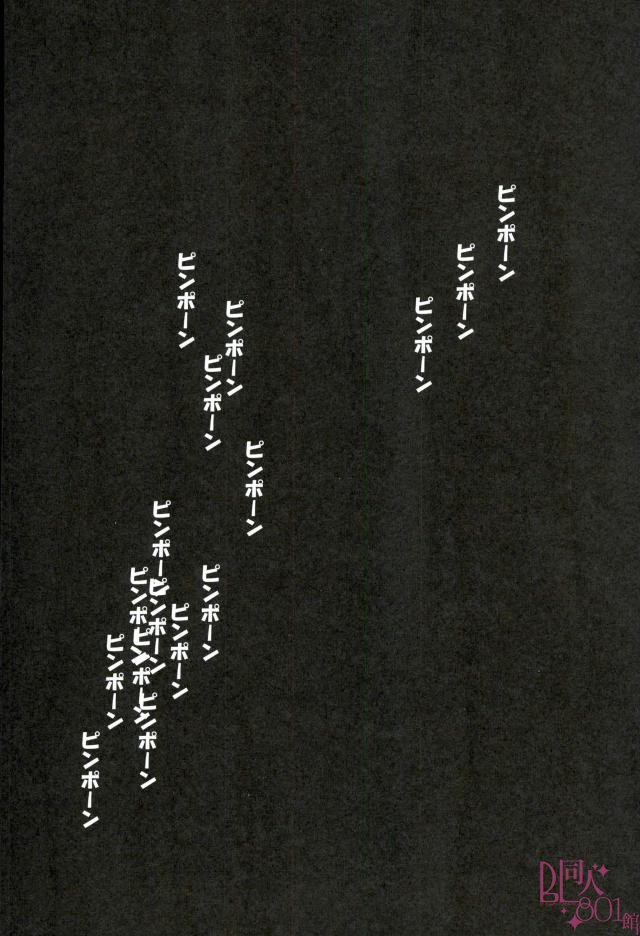 ピンポーン
ピンポーン
ピンポーン
ピンポーン
ピンポーン
ピンポーン
ピンポーン
ピンポーン
ピンポーン
ピンポーン
ピンポーン
ピンポーン
ピンポーン
ピンポーン
ピンポーン
ピンポーン
BL同人801館